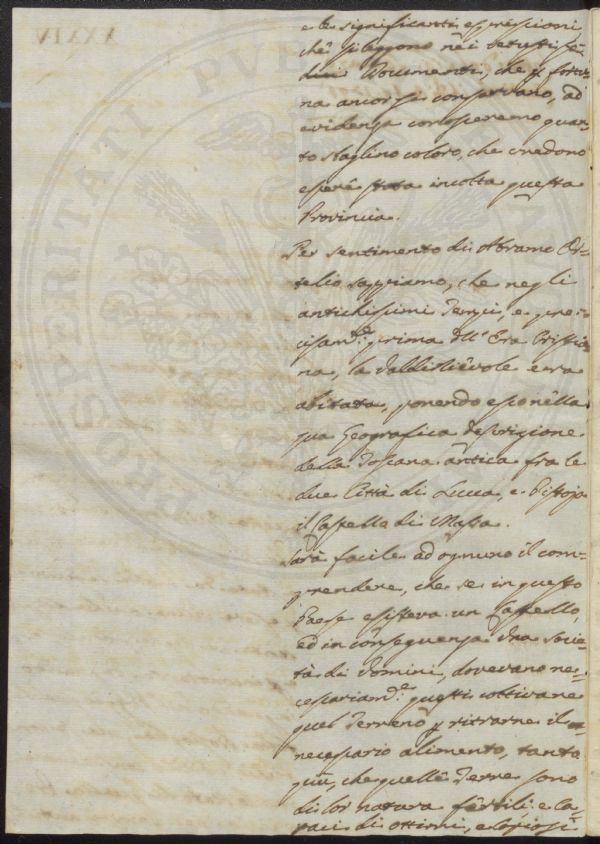 e le significanti espressioni
che si leggono nei vetustis=
simi Documenti, che p fortu=
na ancor si conservano, ad
evidenza conosceremo quan=
to sbaglino coloro, che credono
essere stata incolta questa
Provincia.
Per sentimento di Abramo Or=
telio sappiamo, che negli
antichissimi Tempi, e pre=
cisam.te prima dell'Era Cristia=
na, la Valdinievole era
abitata, ponendo esso nella
sua Geografica descrizione
della Toscana antica fra le
due Città di Lucca, e Pistoja
il Castello di Massa.
Sarà facile ad ognuno il com=
prendere, che se in questo
Paese esisteva un Castello,
ed in conseguenza Una Socie=
tà di Uomini, dovevano ne=
cessariam.e questi coltivare
quel Terreno p ritrarne il
necessario alimento, tanto
più, che quelle Terre sono
di lor natura fertili e ca=
paci di ottimi, e copiosi
XXXIV
PROSPERITATI PVB